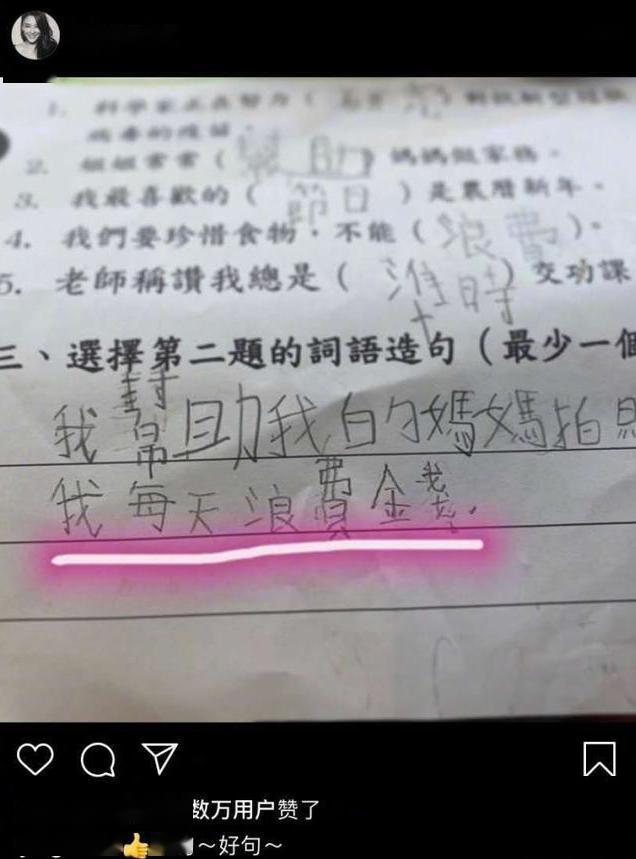 1. 科學家正在努力(
病毒的疫苗。
2. 姐姐常常(幫助)媽媽做家務。
3. 我最喜歡的(節日)是農曆新年。
4. 我們要珍惜食物,不能(浪費)。
5. 老師稱讚我總是(準時)交功課
三、選擇第二題的詞語造句(最少一個
我幫助我的媽媽拍照
我每天浪費金錢.
数万用户赞了
👍 ~好句~